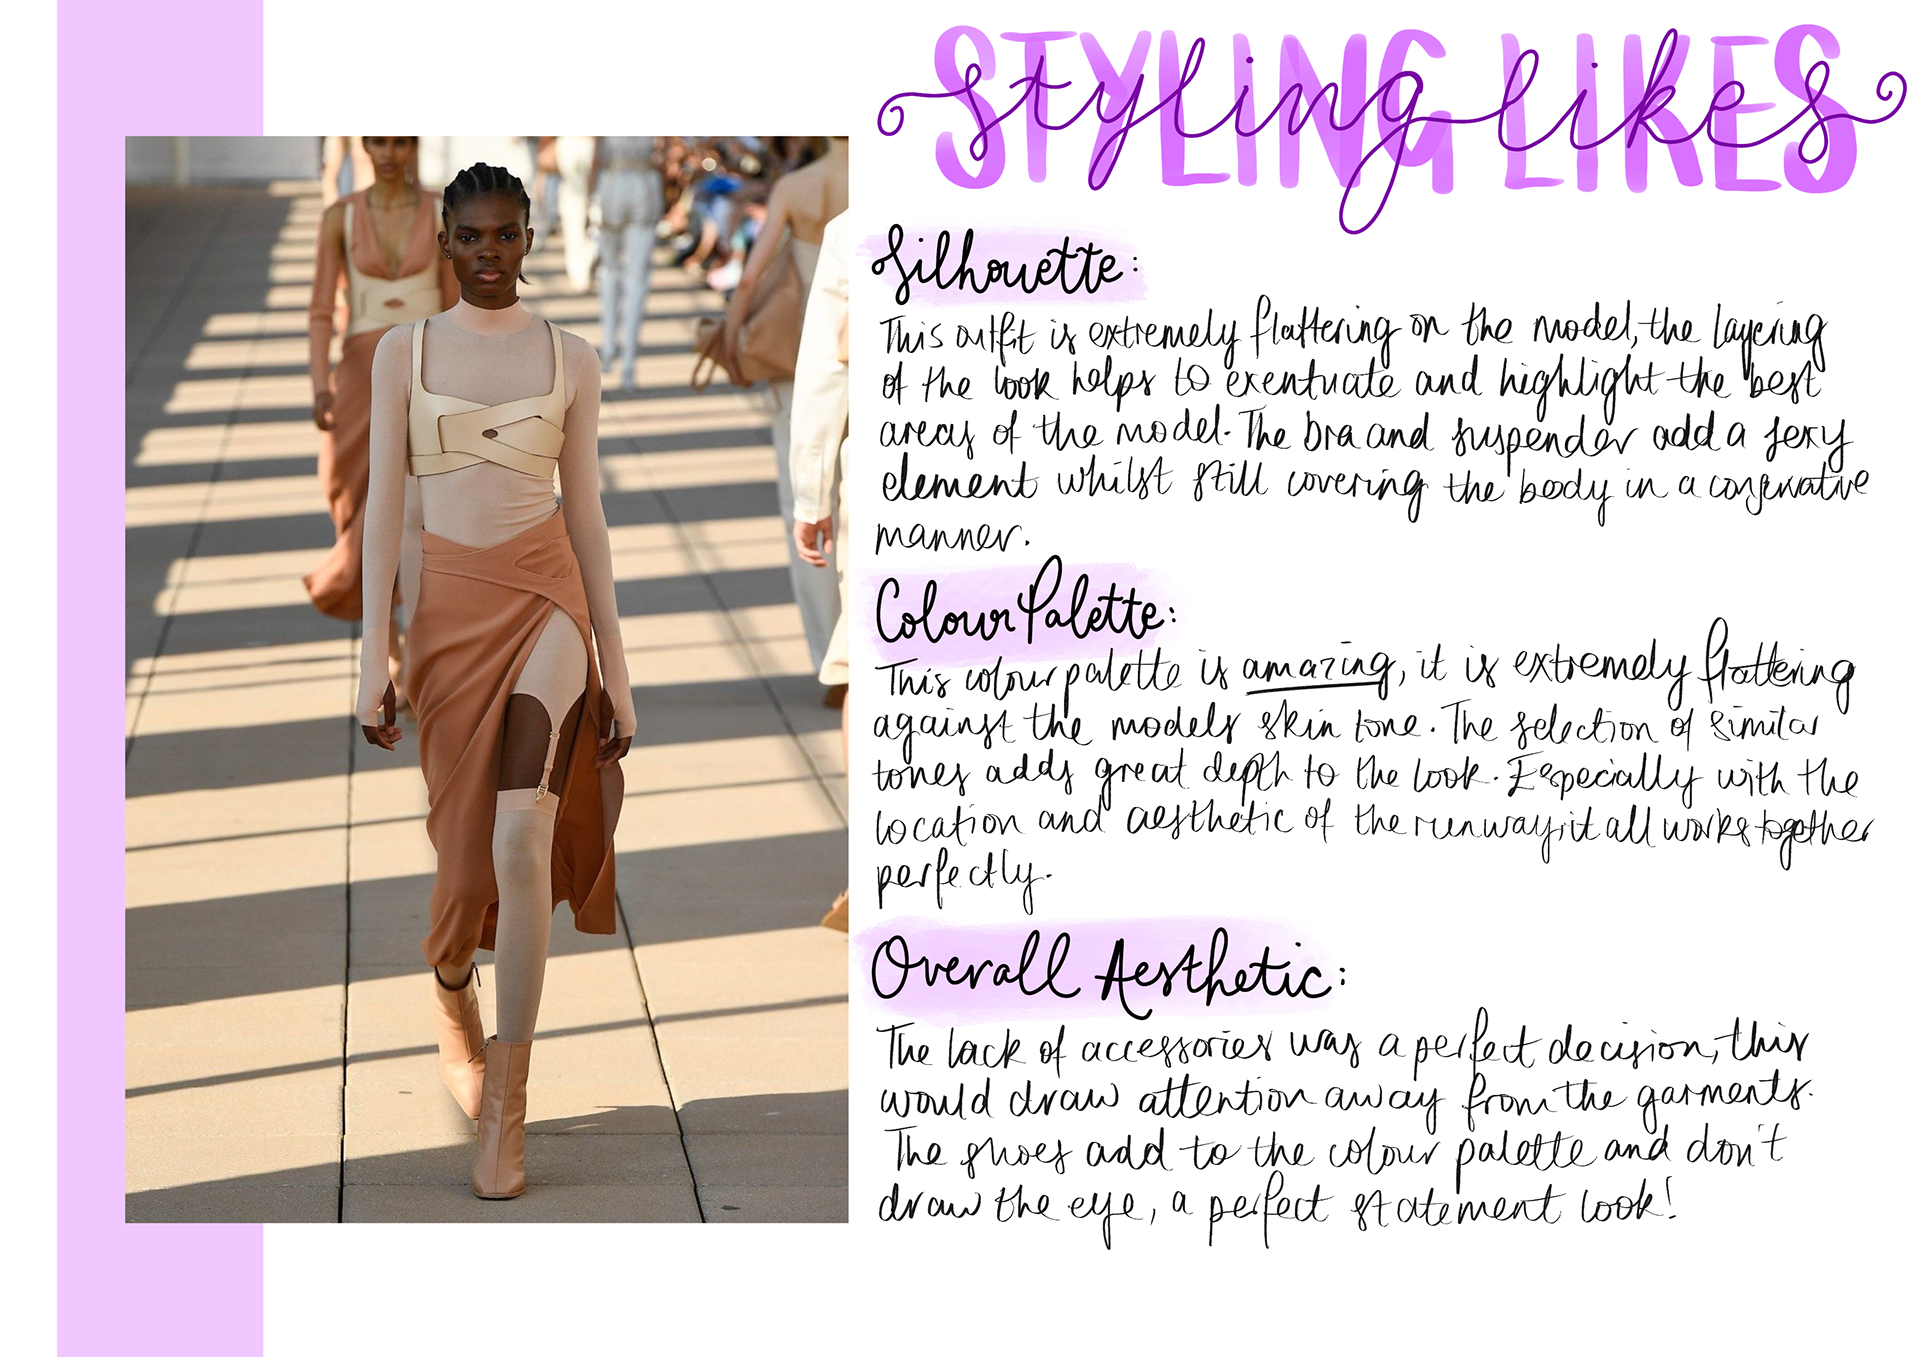 STYLING LIKES
styling likes
Silhouette:
This outfit is extremely flattering on the model, the layering
of the look helps to exentuate and highlight the best
areas of the model. The bra and suspender add a sexy
element whilst still covering the body in a conservative
manner.
Colour Palette:
This colour palette is amazing, it is extremely flattering
against the models skin tone. The selection of similar
tones adds great depth to the look. Especially with the
location and aesthetic of the runway, it all works together
perfectly.
Overall Aesthetic:
The lack of accessories was a perfect decision, this
would draw attention away from the garments.
The shoes add to the colour palette and don't
draw the eye, a perfect statement look!